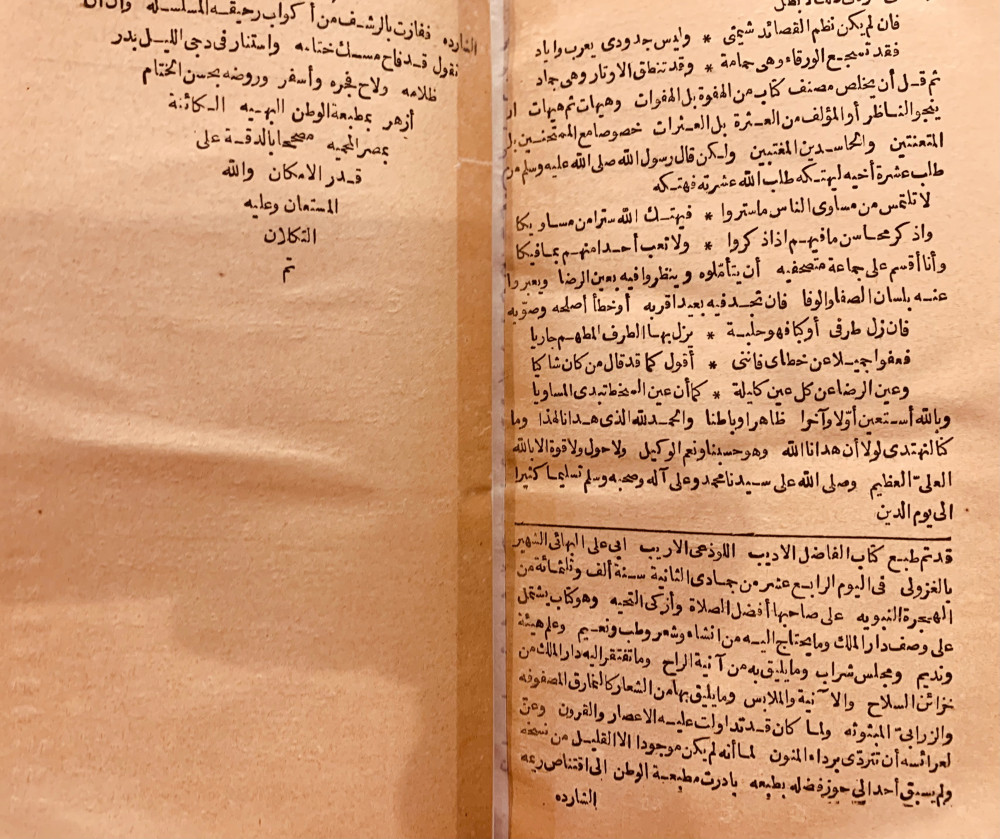 فان لم يكن نظم القصائد شيمتي * وليس جدودي يعرب واياد
فقد تسجع الورقاء وهي حمامة * وقد تنطق الاوتار وهي جماد
ثم قل أن يخلص مصنف كتاب من الهفوة بل الهفوات وهيهات ثم هيهات
ينجو الناظر أو المؤلف من العثرة بل العثرات خصوصا مع الممتحنين بل
المتعنتين والحاسدين المغتبين ولكن قال رسول الله صلى الله عليه وسلم من
طلب عشرة أخيه ليهتكه طلب الله عشرته فهتكه
لا تلتمس من مساوى الناس ما ستروا * فيهتك الله سترا من مساويكا
واذكر محاسن ما فيهم اذا ذكروا * ولا تعب أحدا منهم بما فيكا
وأنا أقسم على جماعة متصفحيه أن يتأملوه وينظروا فيه بعين الرضا ويعبروا
عنه بلسان الصفا والوفا فان تجد فيه بعيدا قربه أو خطأ أصلحه وصوبه
فان زل طرفي أو كبا فهو حلبة * يزل بها الطرف المطهم جاريا
فعفوا جميلا عن خطاى فانني * أقول كما قد قال من كان شاكيا
وعين الرضا عن كل عين كليلة * كما أن عين السخط تبدى المساويا
وبالله أستعين أولا وآخرا ظاهرا وباطنا والحمد لله الذى هدانا لهذا وما
كنا لنهتدى لولا أن هدانا الله وهو حسبنا ونعم الوكيل ولا حول ولا قوة الا بالله
العلى العظيم وصلى الله على سيدنا محمد وعلى آله وصحبه وسلم تسليما كثيرا
الى يوم الدين
قد تم طبع كتاب الفاضل الاديب اللوذعى الاريب ابي على البهائى الشهير
بالغزولى فى اليوم الرابع عشر من جمادى الثانية سنة ألف وثلثمائة من
الهجرة النبويه على صاحبها أفضل الصلاة وأزكى التحيه وهو كتاب يشتمل
على وصف دار الملك وما يحتاج اليه من انشاء وشعر وطب ونعيم وعلم هيئة
ونديم ومجلس شراب وما يليق به من آنية الراح وما تفتقر اليه دار الملك من
خزائن السلاح والآنية والملابس وما يليق بها من الشعار كالنمارق المصفوفه
والزرابى المبثوثه ولما كان قد تداولت عليه الاعصار والقرون وعن
لعرائسه أن تتردى برداء المنون لما أنه لم يكن موجودا الا القليل من نسخه
ولم يسبق أحد الى حوز فضله بطبعه بادرت مطبعة الوطن الى اقتناص ريمه
الشارده
الشارده ففازت بالرشف من أكواب رحيقه المسلسله
نقول قد فاح مسك ختامه واستنار فى دجى الليل بدر
ظلامه ولاح فجره وأسفر وروضه بحسن الختام
أزهر بمطبعة الوطن البهيه الكائنة
بمصر المحميه مصححا بالدقة على
قدر الامكان والله
المستعان وعليه
التكلان
تم